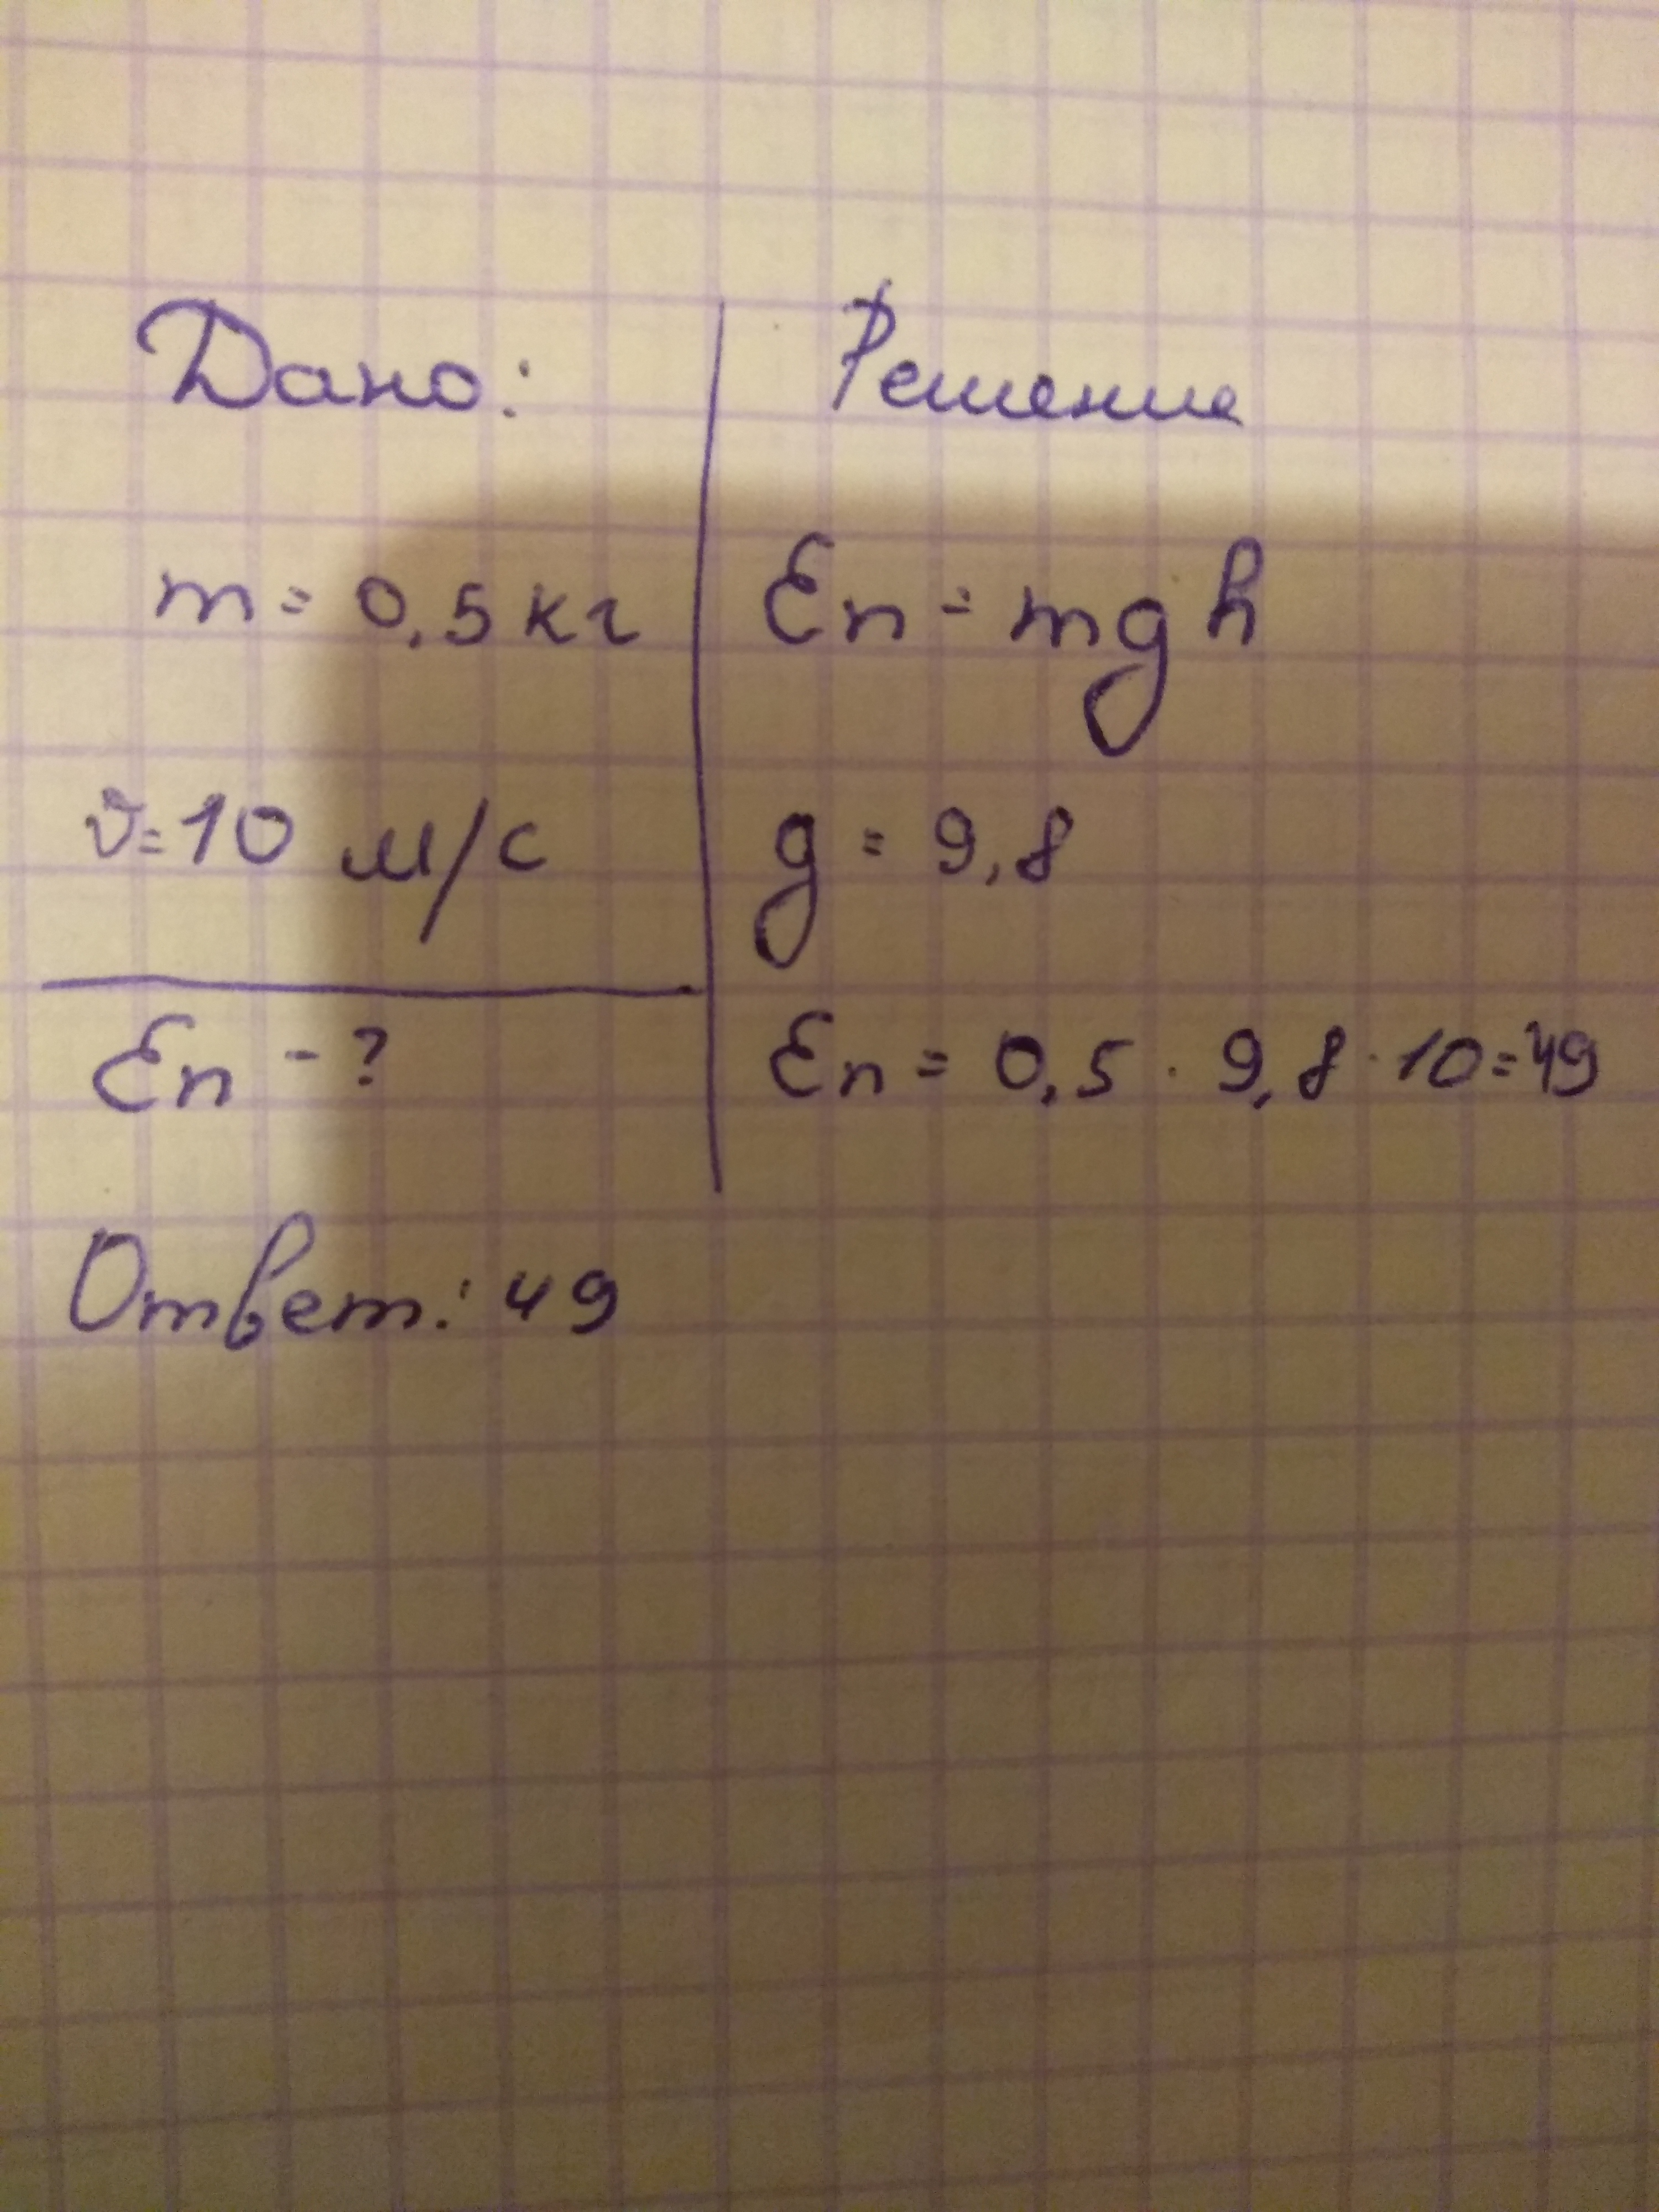 Дано:
m = 0,5 кг
υ=10 м/с
Eп - ?
Решение
Eп = mgh
g = 9,8
Eп = 0,5 · 9,8 · 10=49
Ответ: 49